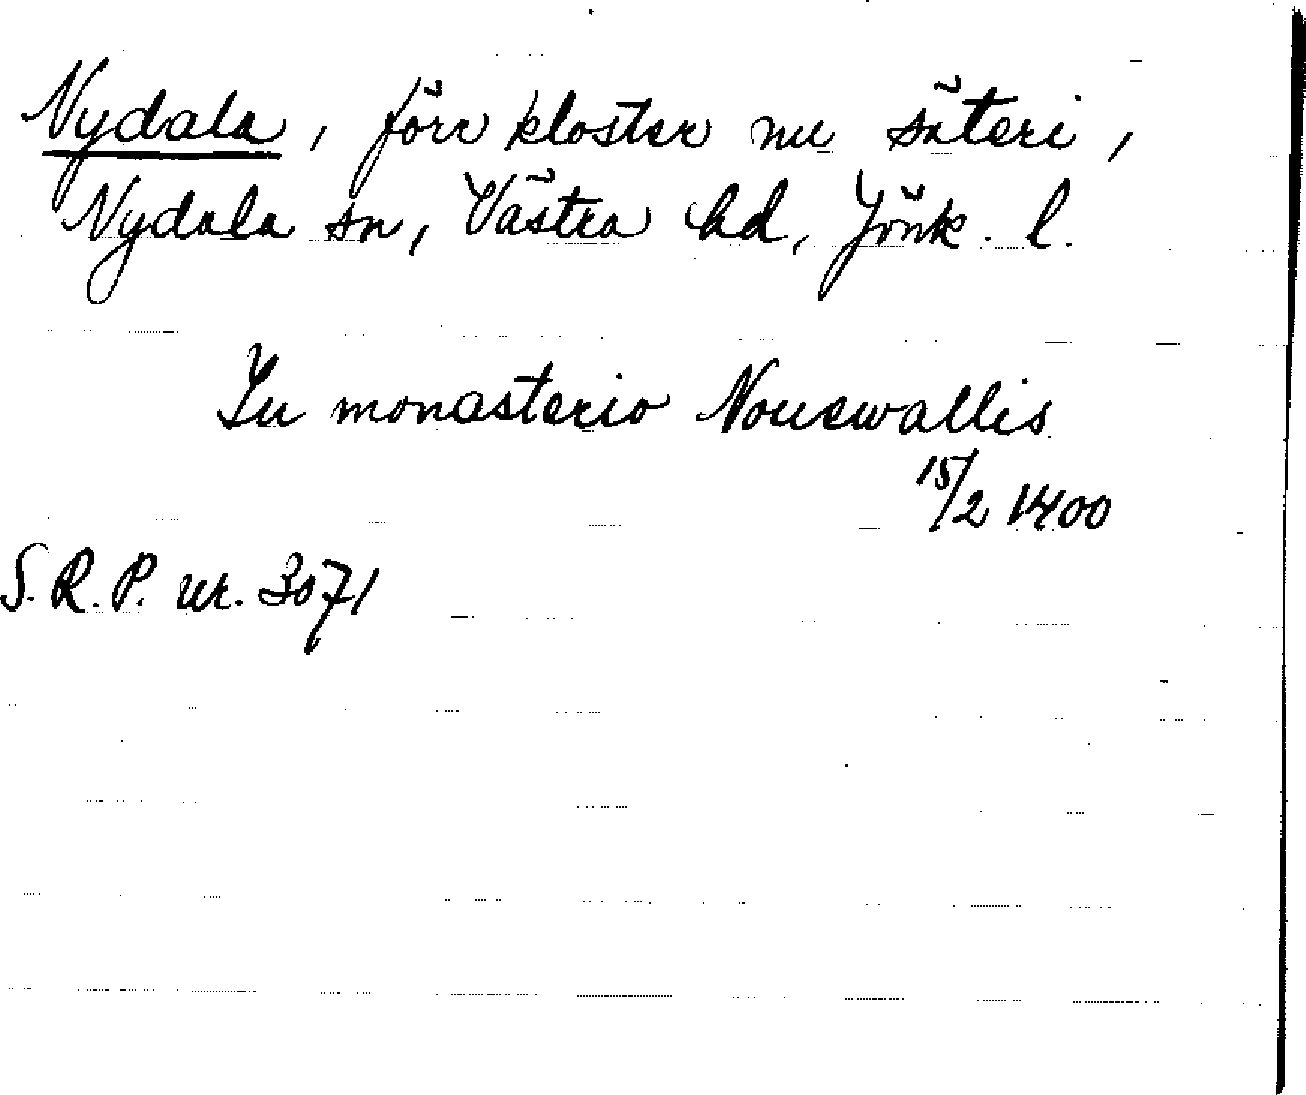 Nydala, förr kloster nu säteri,
Nydala sn, Västra hd, Jönk. l.
In monasterio Nouewallis
15/2 1400
S. R. P. nr. 3071